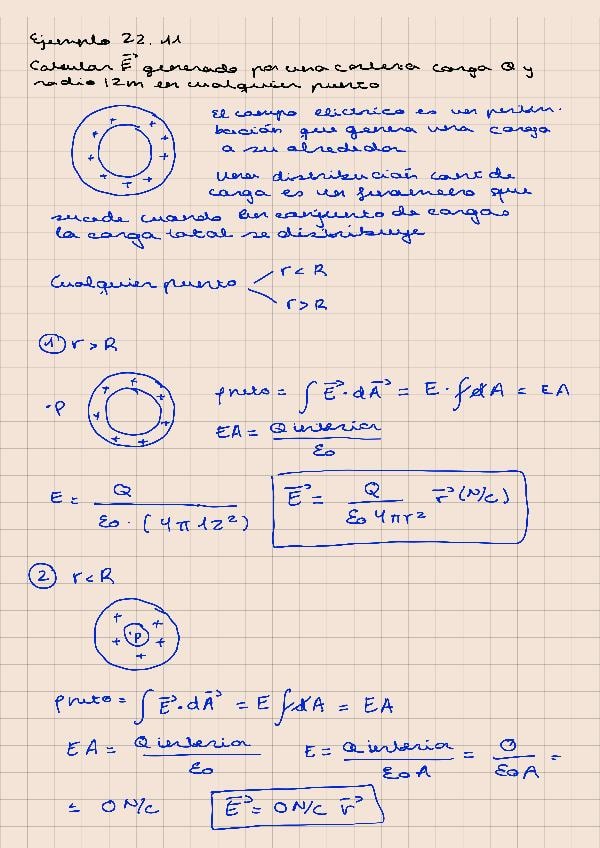 Ejemplo 22.11
Calcular E⃗ generado por una corteza carga Q y
radio 12m en cualquier punto
El campo eléctrico es un pertur-
bación que genera una carga
a su alrededor
Una distribución cont de
carga es un fenómeno que
sucede cuando en conjunto de cargas
la carga total se distribuye
Cualquier punto
r < R
r > R
1) r > R
·P
φneto = ∫ E⃗ · dA⃗ = E · ∫dA = EA
EA = Q interior / εo
E = Q / εo · (4π12²)
E⃗ = Q / εo 4πr² r⃗ (N/C)
2 r < R
·P
φneto = ∫ E⃗ · dA⃗ = E ∫dA = EA
EA = Q interior / εo
E = Q interior / εo A = 0 / εo A =
= 0 N/C
E⃗ = 0 N/C r⃗